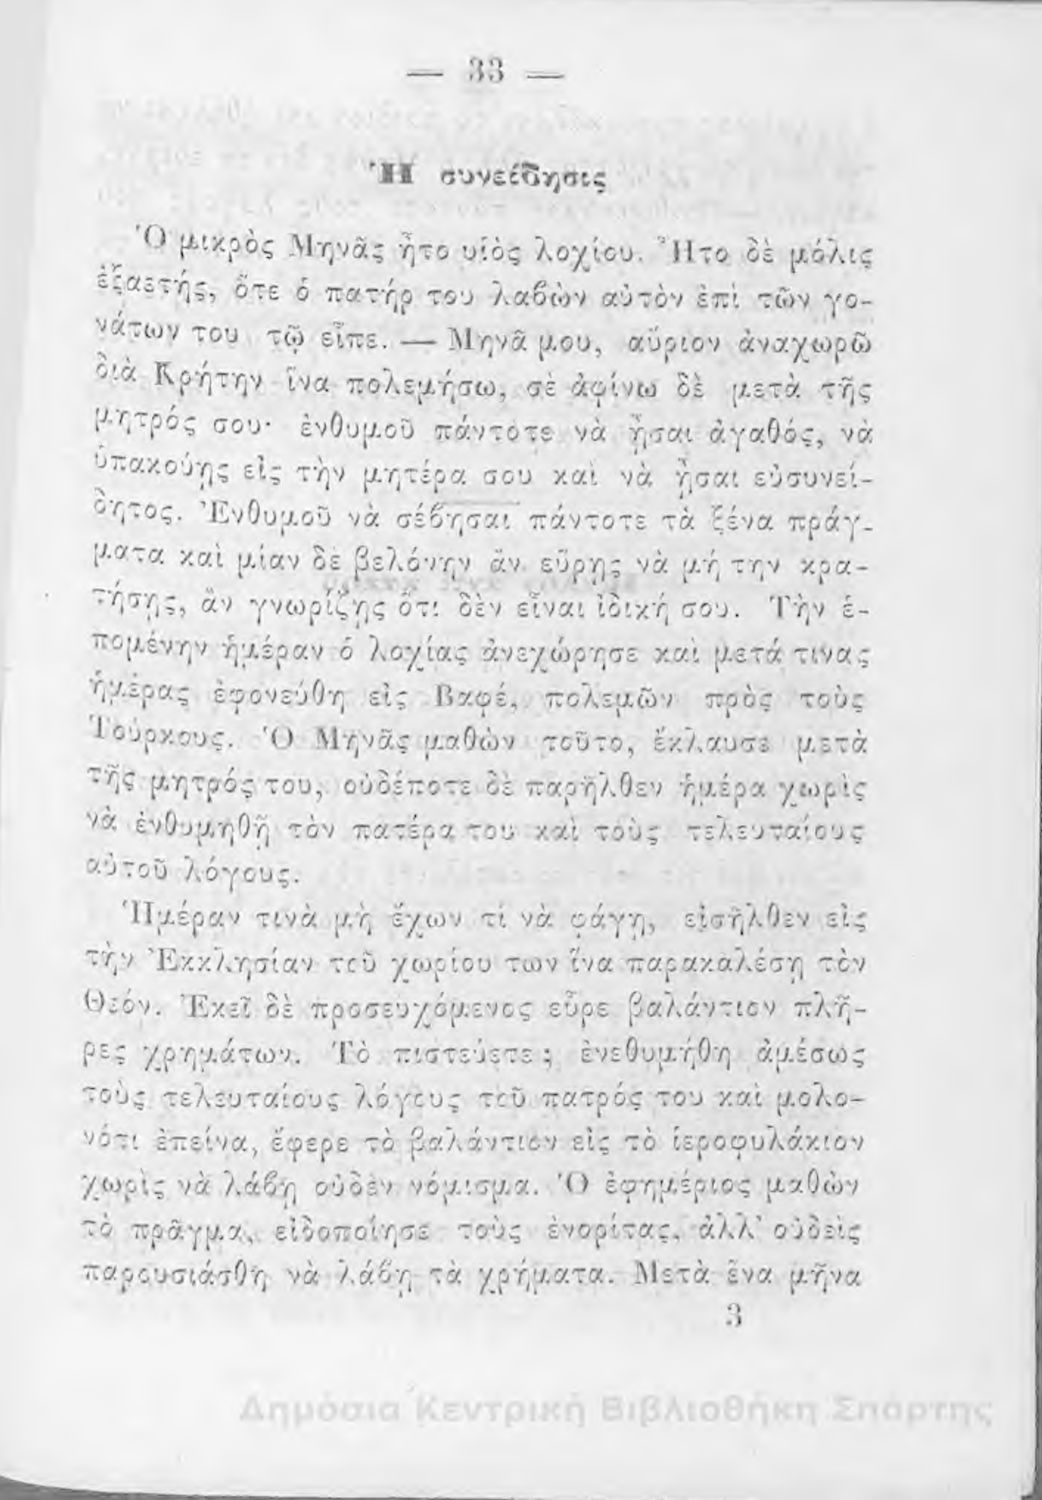 — 33 —
Ἡ συνείδησις
Ὁ μικρὸς Μηνᾶς ἦτο υἱὸς λοχίου. Ἦτο δὲ μόλις
ἑξαετής, ὅτε ὁ πατήρ του λαβὼν αὐτὸν ἐπὶ τῶν γο-
νάτων του τῷ εἶπε. — Μηνᾶ μου, αὔριον ἀναχωρῶ
διὰ Κρήτην ἵνα πολεμήσω, σὲ ἀφίνω δὲ μετὰ τῆς
μητρός σου· ἐνθυμοῦ πάντοτε νὰ ᾖσαι ἀγαθός, νὰ
ὑπακούῃς εἰς τὴν μητέρα σου καὶ νὰ ᾖσαι εὐσυνεί-
δητος. Ἐνθυμοῦ νὰ σέβησαι πάντοτε τὰ ξένα πράγ-
ματα καὶ μίαν δὲ βελόνην ἂν εὕρῃς νὰ μή την κρα-
τήσῃς, ἂν γνωρίζῃς ὅτι δὲν εἶναι ἰδική σου. Τὴν ἑ-
πομένην ἡμέραν ὁ λοχίας ἀνεχώρησε καὶ μετά τινας
ἡμέρας ἐφονεύθη εἰς Βαφέ, πολεμῶν πρὸς τοὺς
Τούρκους. Ὁ Μηνᾶς μαθὼν τοῦτο, ἔκλαυσε μετὰ
τῆς μητρός του, οὐδέποτε δὲ παρῆλθεν ἡμέρα χωρὶς
νὰ ἐνθυμηθῇ τὸν πατέρα του καὶ τοὺς τελευταίους
αὐτοῦ λόγους.
Ἡμέραν τινὰ μὴ ἔχων τί νὰ φάγῃ, εἰσῆλθεν εἰς
τὴν Ἐκκλησίαν τοῦ χωρίου των ἵνα παρακαλέσῃ τὸν
Θεόν. Ἐκεῖ δὲ προσευχόμενος εὗρε βαλάντιον πλῆ-
ρες χρημάτων. Τὸ πιστεύετε; ἐνεθυμήθη ἀμέσως
τοὺς τελευταίους λόγους τοῦ πατρός του καὶ μολο-
νότι ἐπείνα, ἔφερε τὸ βαλάντιον εἰς τὸ ἱεροφυλάκιον
χωρὶς νὰ λάβῃ οὐδὲν νόμισμα. Ὁ ἐφημέριος μαθὼν
τὸ πρᾶγμα, εἰδοποίησε τοὺς ἐνορίτας, ἀλλ' οὐδεὶς
παρουσιάσθη νὰ λάβῃ τὰ χρήματα. Μετὰ ἕνα μῆνα
3
Δημόσια Κεντρική Βιβλιοθήκη Σπάρτης